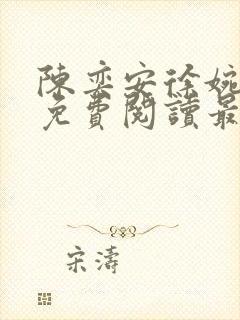 陳奕安徐婉
免費閱讀最
宋濤